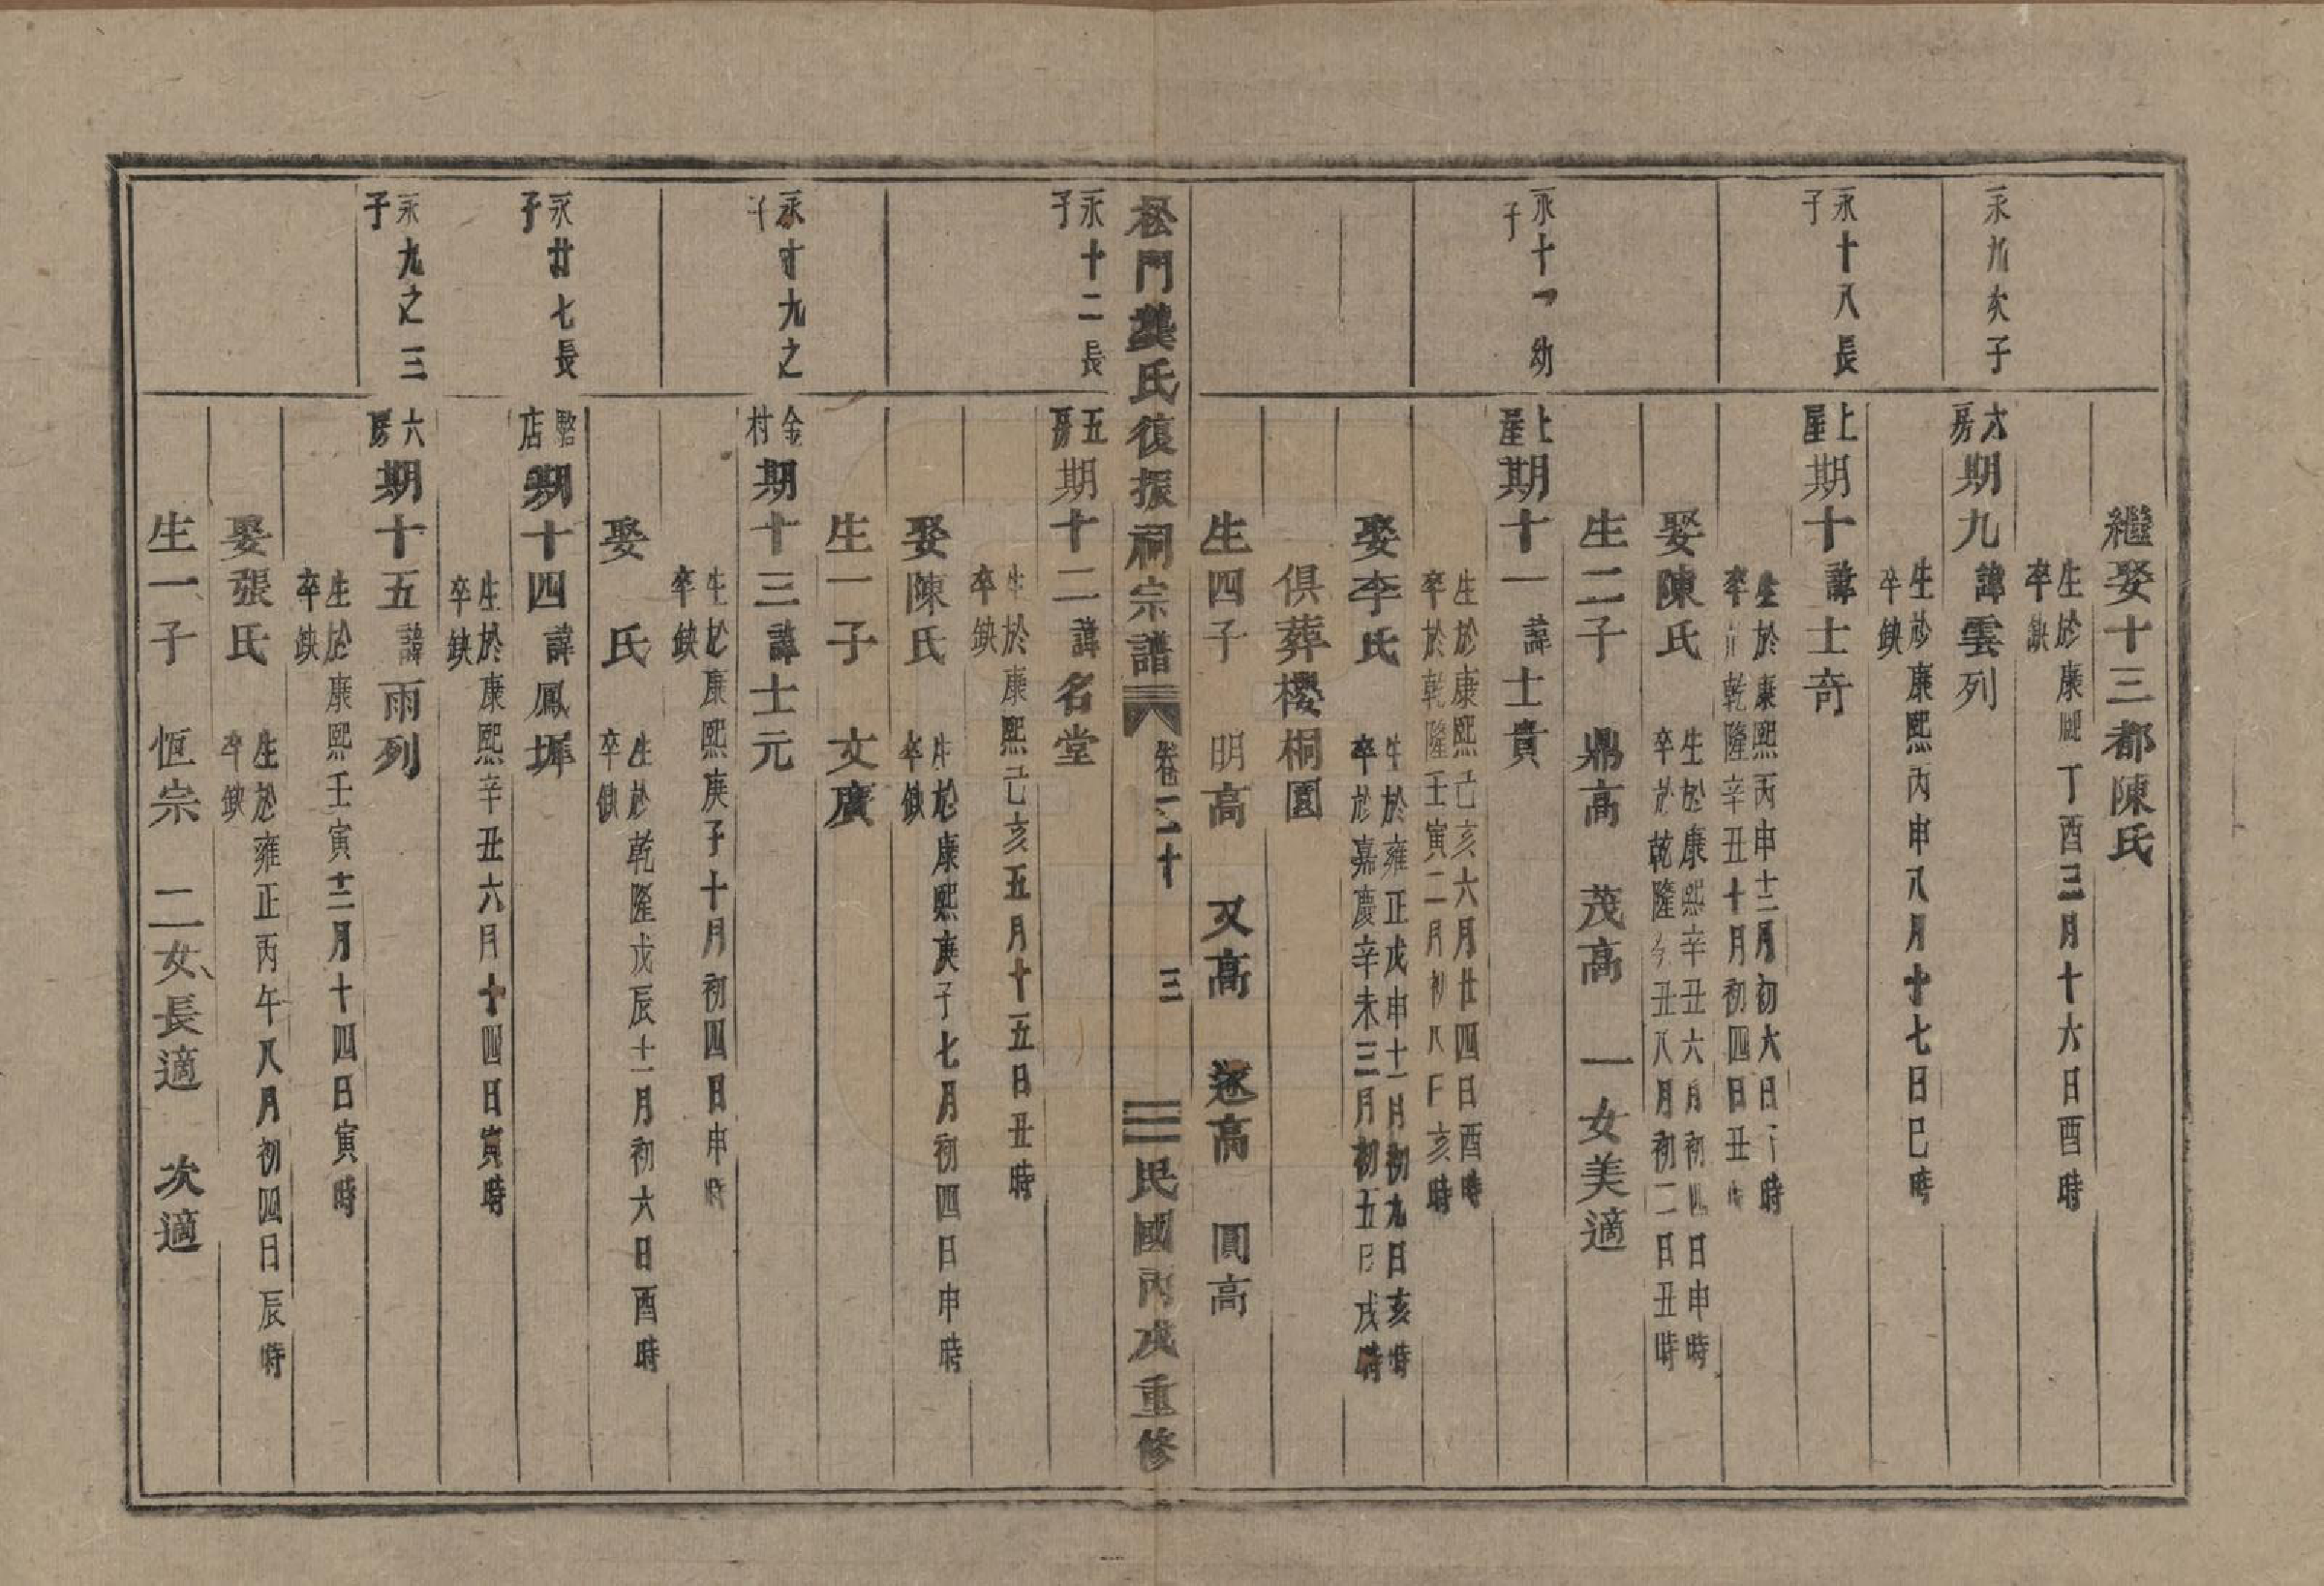 繼娶十三都陳氏
生於康熙丁酉三月十六日酉時
卒缺
永九次子
六房期九 諱雲列
生於康熙丙申八月十七日巳時
卒缺
永十八長子
上屋期十 諱士奇
生於康熙丙申十二月初六日 時
卒於乾隆辛丑十月初四日丑時
娶陳氏
生於康熙辛丑六月初四日申時
卒於乾隆 丑八月初二日丑時
生二子 鼎高 茂高 一女美適
永十一幼子
上屋期十一 諱士貴
生於康熙己亥六月廿四日酉時
卒於乾隆壬寅二月初八日亥時
娶李氏
生於雍正戊申十一月初九日亥時
卒於嘉慶辛未三月初五日戌時
俱葬樱桐園
生四子 明高 又高 逐高 圓高
松門龔氏復振祠宗譜 卷二十 三 民國丙戌重修
永十二長子
五房期十二 諱名堂
生於康熙己亥五月十五日丑時
卒缺
娶陳氏
生於康熙庚子七月初四日申時
卒缺
生一子 文廣
永十九之子
金村期十三 諱士元
生於康熙庚子十月初四日申時
卒缺
娶 氏
生於乾隆戊辰十一月初六日酉時
卒缺
永廿七長子
店期十四 諱鳳墀
生於康熙辛丑六月十四日寅時
卒缺
永九之三子
六房期十五 諱雨列
生於康熙壬寅十二月十四日寅時
卒缺
娶張氏
生於雍正丙午八月初四日辰時
卒缺
生一子 恒宗 二女長適 次適